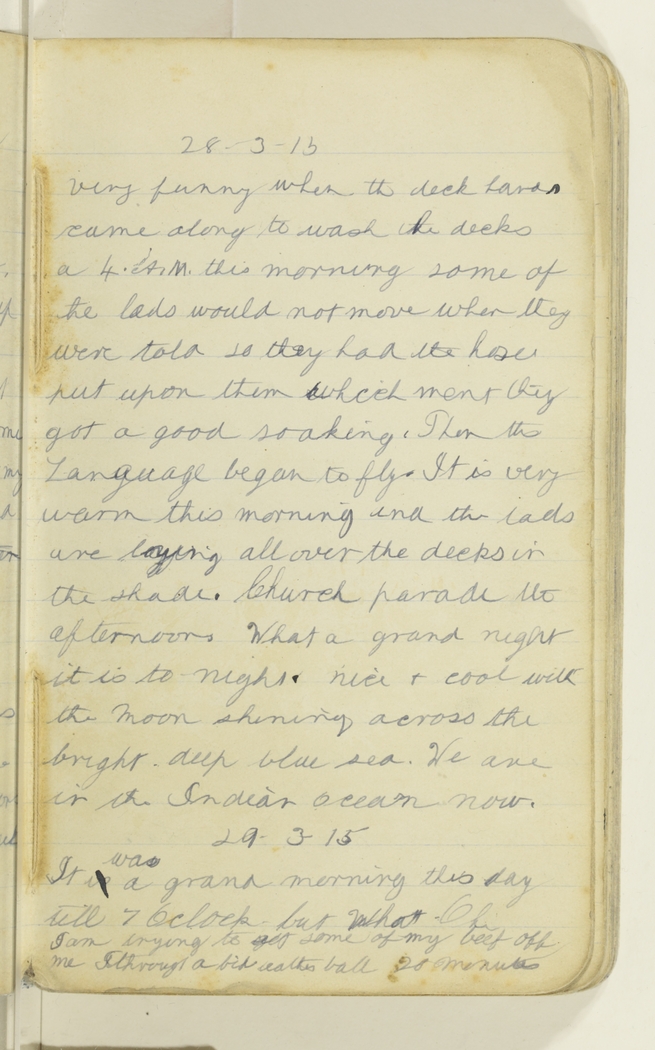 28-3-15
very funny when th deck hands
came along to wash the decks
a 4. A.M. this morning some of
the lads would not move when they
were told so they had the hose
put upon them which ment they
got a good soaking. Then the
Language began to fly. It is very
warm this morning and the lads
are laying all over the decks in
the shade. Church parade the
afternoons What a grand night
it is to-night. nice + cool with
the moon shining across the
bright deep blue sea. We are
in the Indian Ocean now.
29-3-15
was
It is a grand morning this day
till 7 Oclock but What - Oh
I am trying to get some of my beef off
me I through a ball 20 minutes